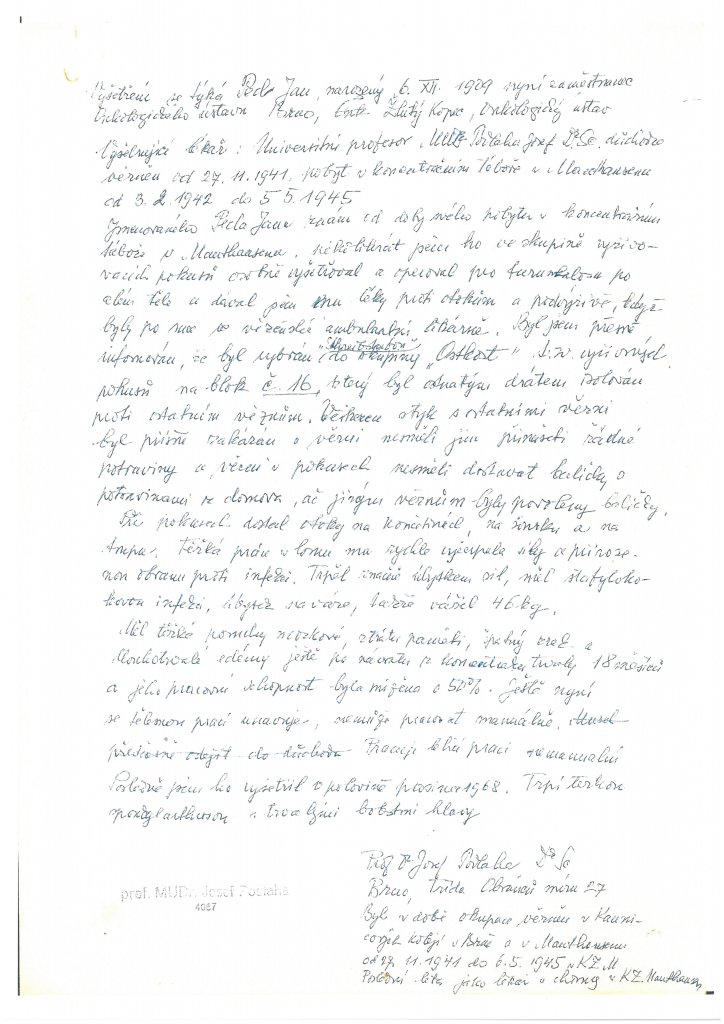 Vyšetření se týká Pecl Jan, narozený 6. XII. 1909 nyní zaměstnanec
Onkologického ústavu Brno, Žlutý Kopec, Onkologický ústav
Vyšetřující lékař: Universitní profesor MUDr Podlaha Josef DrSc. důchodce
vězněn od 27. 11. 1941, pobyt v koncentračním táboře v Mauthausenu
od 3. 2. 1942 do 5 5. 1945
Jmenovaného Pecla Jana znám od doby mého pobytu v koncentračním
táboře v Mauthausenu, několikrát jsem ho ve skupině vyživo-
vacích pokusů osobně vyšetřoval a operoval pro furunkulosu po
celém těle a dával jsem mu léky proti otokům a podvýživě, když
byly po ruce ve vězeňské ambulantní lékárně. Byl jsem přesně
informován, že byl vybrán do skupiny "Ostkost" t.zv. vyživovacích
pokusů na blok č. 16, který byl ostnatým drátem isolován
proti ostatním vězňům. Veškeren styk s ostatními vězni
byl přísně zakázán a vězni nesměli jim přinášeti žádné
potraviny a vězni v pokusech nesměli dostávat balíčky s
potravinami z domova, ač jiným vězňům byly povoleny balíčky.
Při pokusech dostal otoky na končetinách, na šourku a na
trupu. Těžká práce v lomu mu rychle vyčerpala síly a přiroze-
nou obranu proti infekci. Trpěl značně úbytkem sil, měl stafyloko-
kovou infekci, úbytek na váze, takže vážil 46 kg.
Měl těžké poruchy mozkové, ztrátu paměti, špatný zrak a
dlouhotrvalé edémy ještě po návratu z koncentráku trvaly 18 měsíců
a jeho pracovní schopnost byla snížena o 50%. Ještě nyní
se tělesnou prací unavuje, nemůže pracovat manuálně. Musel
předčasně odejít do důchodu Pracuje lehčí prací nemanuální
Posledně jsem ho vyšetřil v polovině prosince 1968. Trpí těžkou
spondylarthrosou s trvalými bolestmi hlavy
Prof Dr Josef Podlaha DrSc
Brno, třída Obránců míru 27
Byl v době okupace vězněn v Kauni-
cových kolejích v Brně a v Mauthausenu
od 27. 11. 1941 do 6. 5. 1945 v KZ. M
Poslední léta jako lékař a chirurg v KZ. Mauthausen
prof. MUDr. Josef Podlaha
4067